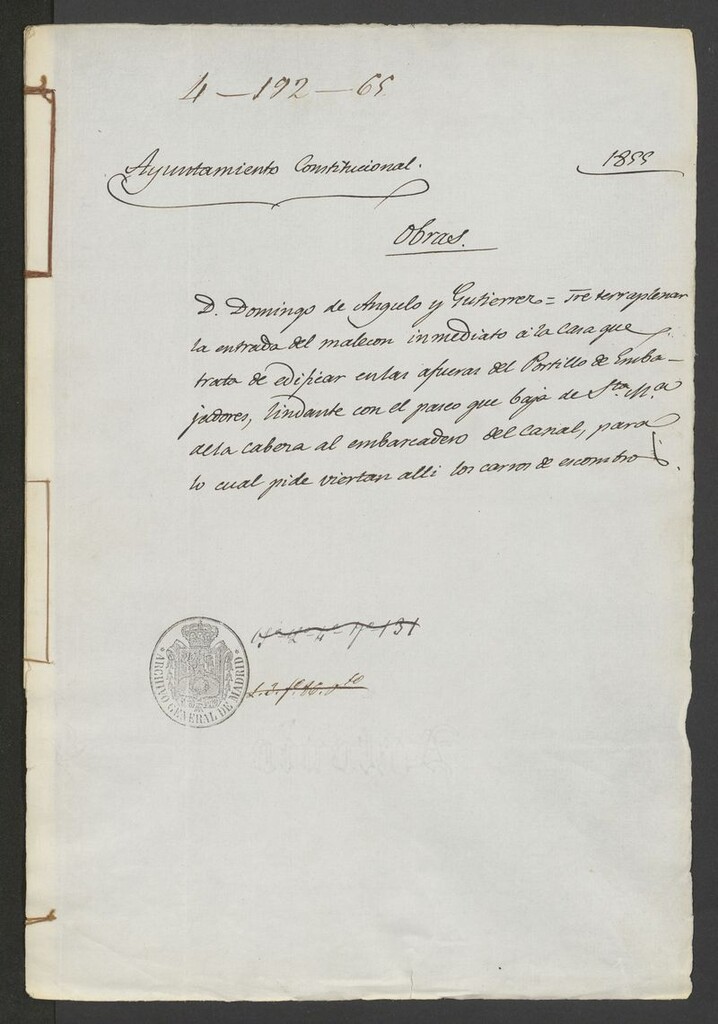 4 — 192 — 65
Ayuntamiento Constitucional.
1855
Obras.
D. Domingo de Angulo y Gutierrez = terraplenar
la entrada del malecon inmediato á la Casa que
trata de edificar en las afueras del Portillo de Emba-
jadores, lindante con el paseo que baja de Sta. Ma.
de la Cabeza al embarcadero del Canal, para
lo cual pide viertan alli los carros de escombro.
131
ARCHIVO GENERAL DE MADRID